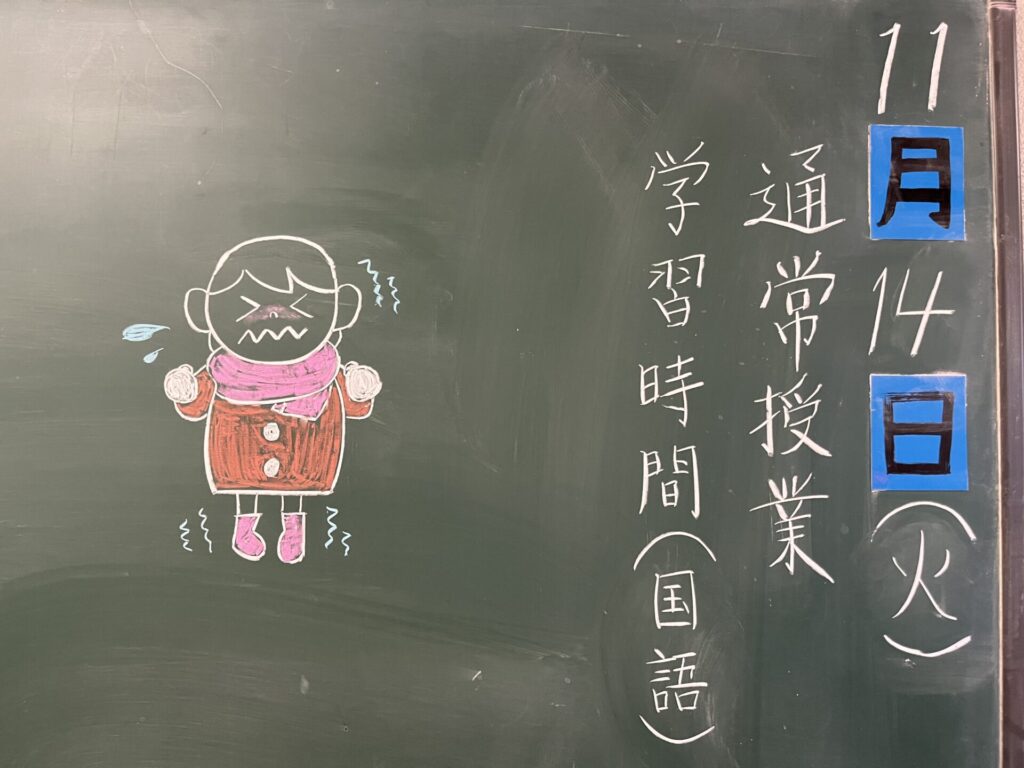 11月14日(火)
通常授業
学習時間(国語)